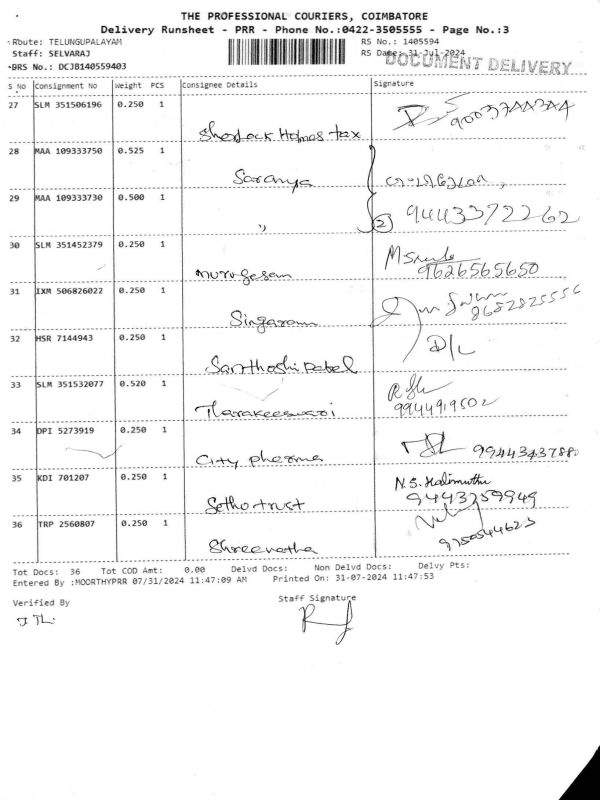 THE PROFESSIONAL COURIERS, COIMBATORE
Delivery Runsheet - PRR - Phone No.:0422-3505555 - Page No.:3
Route: TELUNGUPALAYAM RS No.: 1405594
Staff: SELVARAJ RS Date: 31-Jul-2024
DRS No.: DCJB140559403 DOCUMENT DELIVERY
S No Consignment No Weight PCS Consignee Details Signature
27 SLM 351506196 0.250 1
Sherlock Holmes tax
28 MAA 109333750 0.525 1
Saranya
29 MAA 109333730 0.500 1
" 2 9443372262
30 SLM 351452379 0.250 1
murugesan 9626565650
31 IXM 506826022 0.250 1
Singaram 8682825556
32 HSR 7144943 0.250 1 D/L
Santhoshi Patel
33 SLM 351532077 0.520 1
Tharakeeswari 9944919502
34 DPI 5273919 0.250 1
City pharma 99443437880
35 KDI 701207 0.250 1 N.S. Halimuthu
Sethu trust 9443259949
36 TRP 2560807 0.250 1
Shreenatha 9750544623
Tot Docs: 36 Tot COD Amt: 0.00 Delvd Docs: Non Delvd Docs: Delvy Pts:
Entered By :MOORTHYPRR 07/31/2024 11:47:09 AM Printed On: 31-07-2024 11:47:53
Verified By Staff Signature